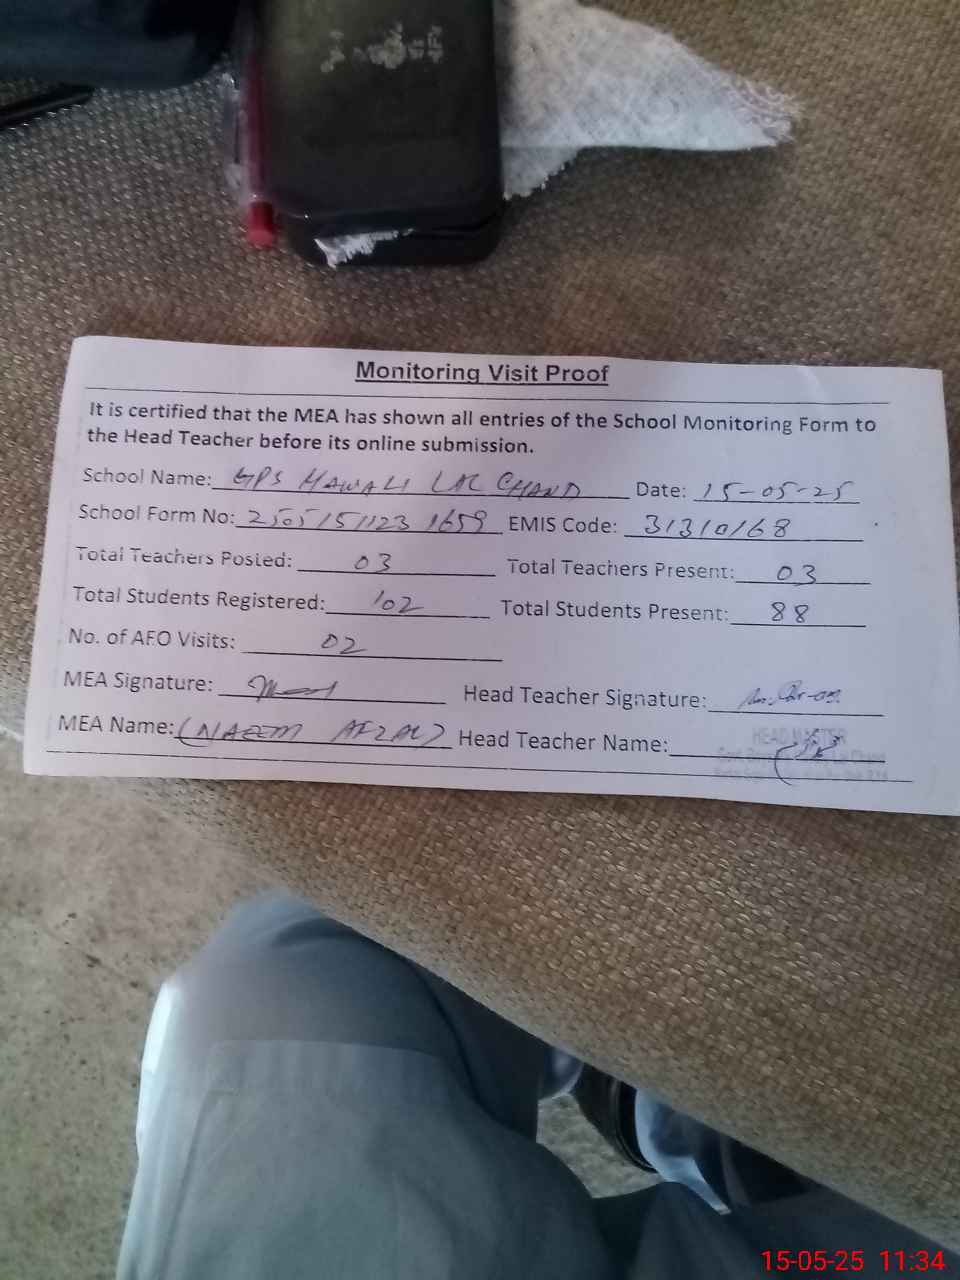 Monitoring Visit Proof
It is certified that the MEA has shown all entries of the School Monitoring Form to
the Head Teacher before its online submission.
School Name: GPS HAWALI LAL CHAND Date: 15-05-25
School Form No: 25051511231659 EMIS Code: 31310168
Total Teachers Posted: 03 Total Teachers Present: 03
Total Students Registered: 102 Total Students Present: 88
No. of AFO Visits: 02
MEA Signature: Head Teacher Signature:
MEA Name: (NAEEM AFZAL) Head Teacher Name:
HEAD MASTER
15-05-25 11:34